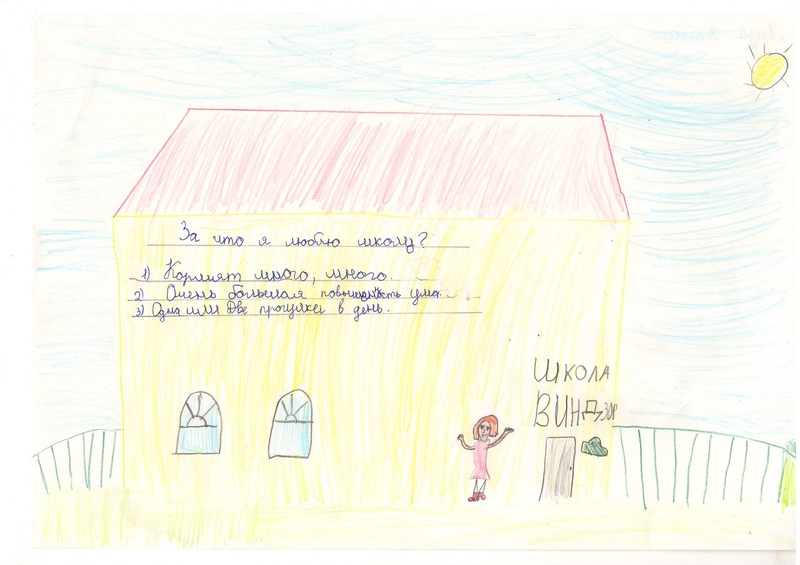 За что я люблю школу?
1) Кормият много, много.
2) Очень большая ума.
3) Одна или две прогулки в день.
ШКОЛА
ВИНДЗОР